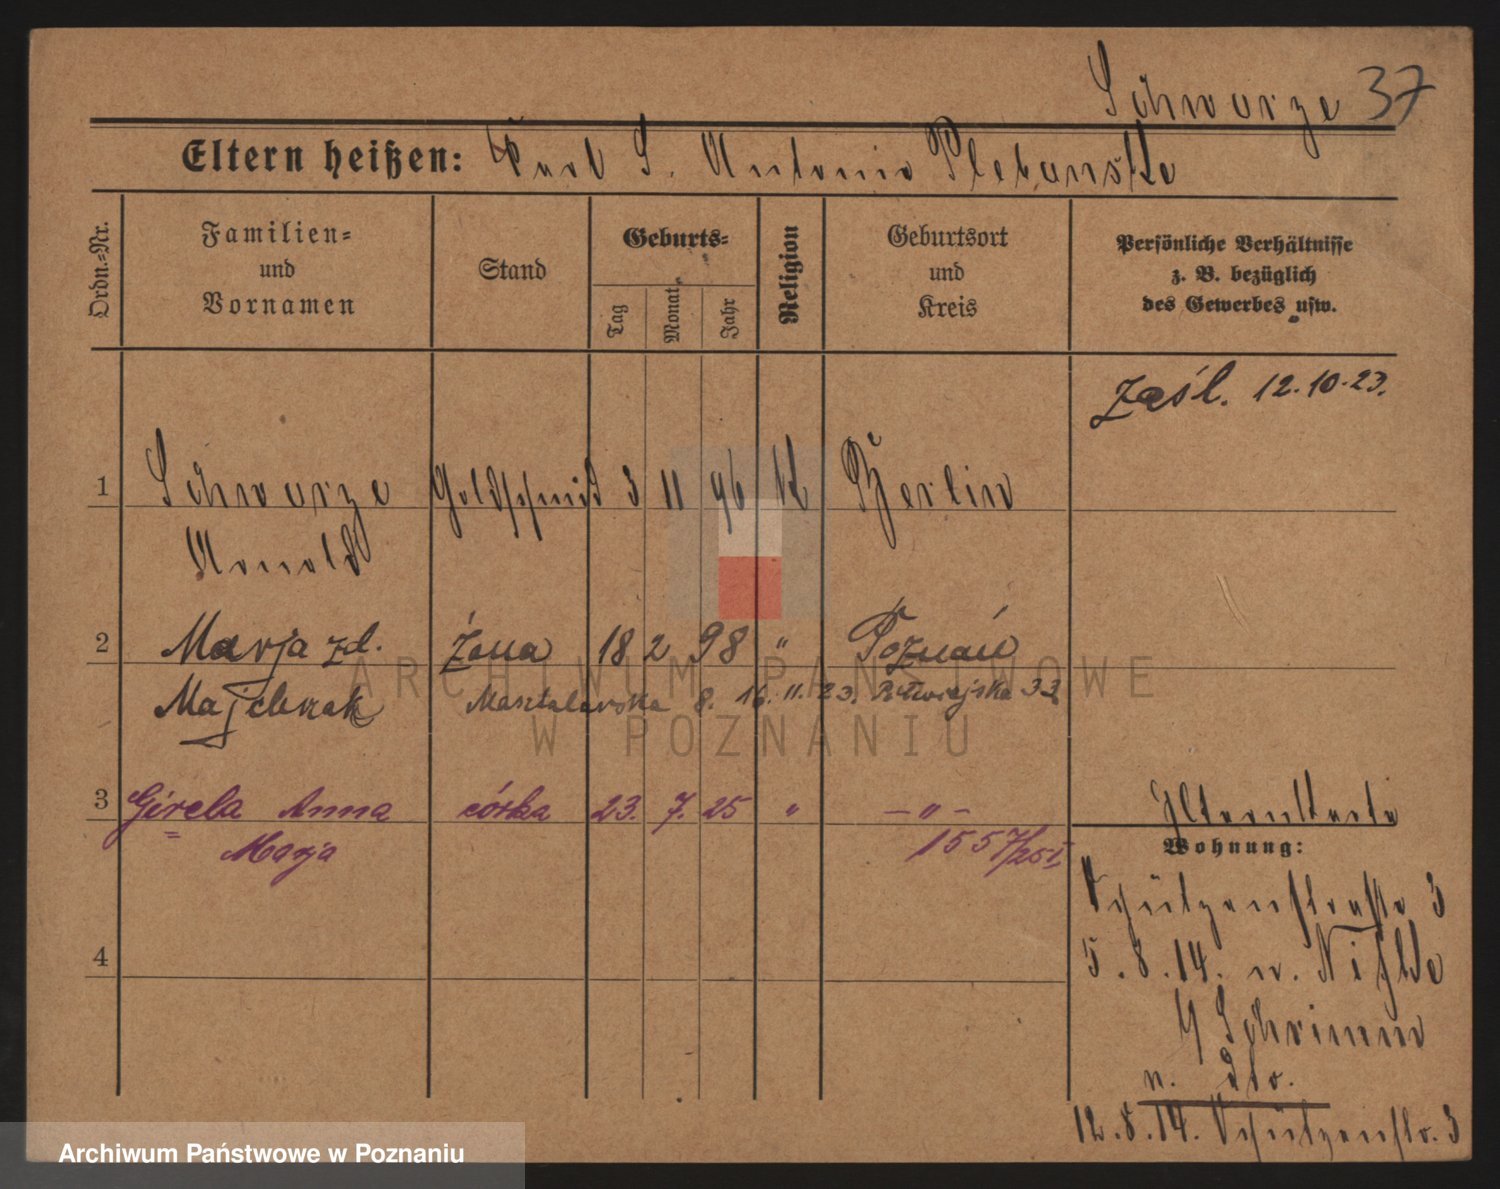 Schwarze 37
Eltern heißen: Karl S. Antonie Plebanska
Ordn.-Nr.
Familien-
und
Vornamen
Stand
Geburts-
Tag
Monat
Jahr
Religion
Geburtsort
und
Kreis
Persönliche Verhältnisse
z. B. bezüglich
des Gewerbes usw.
zaśl. 12.10.23.
1 Schwarze Goldschmid 3 11 96 k Berlin
Arnold
2 Marja zd. żona 18 2 98 " Poznań
Majchrzak Masztalarska 8. 16.11.23. Półwiejska 33
3 Gizela Anna córka 23. 7. 25 " — " —
Marja 1557/25 I.
4
Wohnung:
Schützenstraße 3
5.8.14. n.
Schrimm
n. dto.
12.8.14. Schützenstr. 3
ARCHIWUM PAŃSTWOWE
W POZNANIU
Archiwum Państwowe w Poznaniu